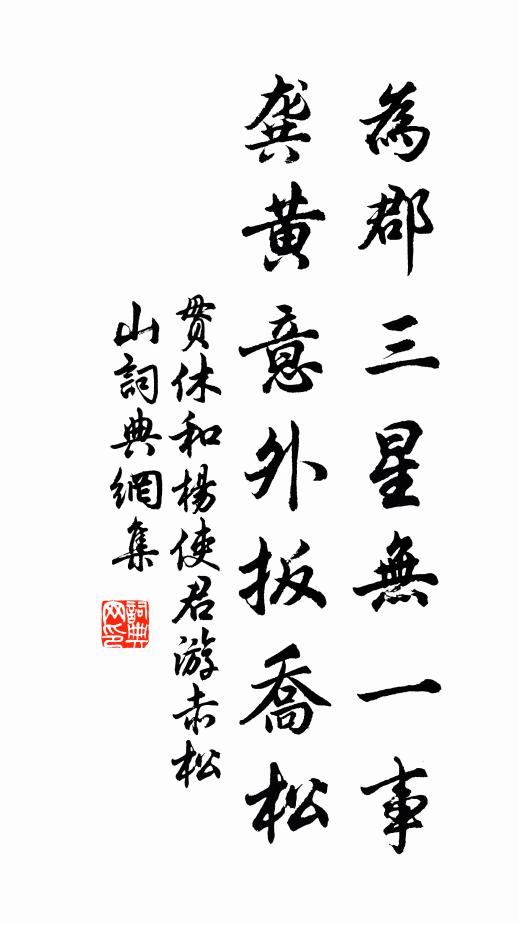 為郡三星無一事
龔黄意外扳喬松
贯休和楊使君游赤松
山詞典網集
詞典
网印